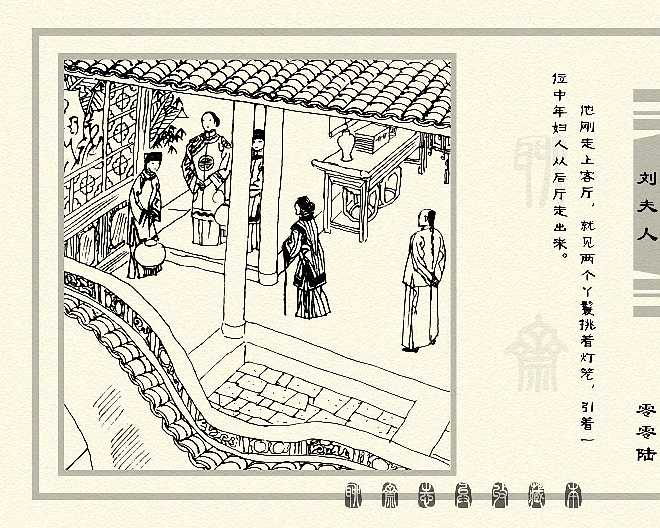 刘夫人
零零陆
他刚走上客厅，就见两个丫鬟挑着灯笼，引着一
位中年妇人从后厅走出来。
聊斋志异收藏本